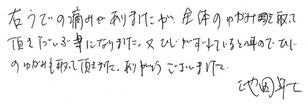 右うでの痛みがありましたが、全体のゆがみを取って
頂きだいぶ楽になりました。又ひじがずれているとの事ので、ひじ
のゆがみも取って頂きました。ありがとうございました。
池田